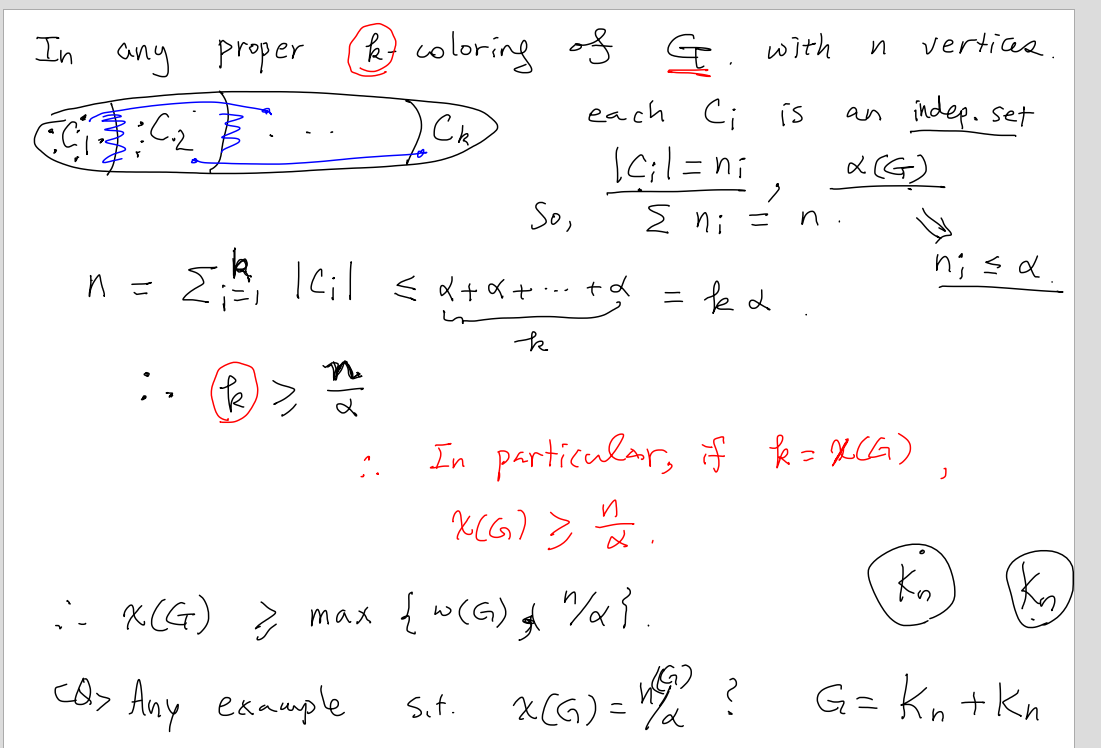 In any proper k-coloring of G. with n vertices.
C1 C2 ... Ck
each Ci is an indep. set
|Ci| = ni , α(G)
So, Σ ni = n.
ni ≤ α.
n = Σ_{i=1}^{k} |Ci| ≤ α+α+...+α = kα.
k
∴ k ≥ n/α
∴ In particular, if k = χ(G),
χ(G) ≥ n/α.
Kn Kn
∴ χ(G) ≥ max { ω(G), n/α }.
<Q> Any example s.t. χ(G) = n(G)/α ? G = Kn + Kn